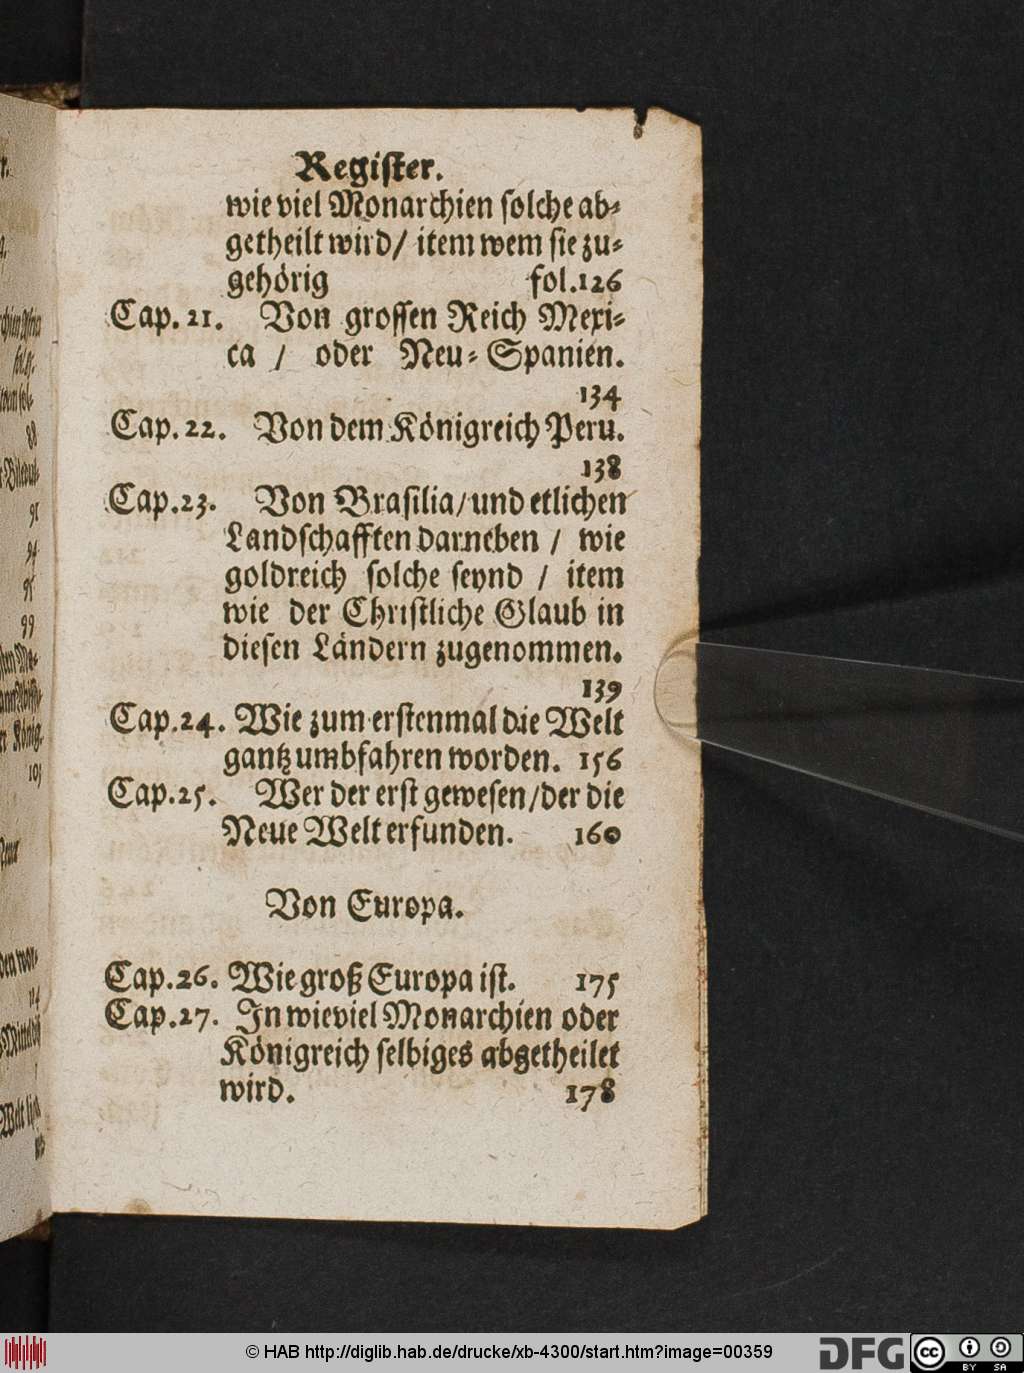 Register.
wie viel Monarchien solche ab⸗
getheilt wird/ item wem sie zu⸗
gehörig fol.126
Cap. 21. Von grossen Reich Mexi⸗
ca / oder Neu⸗Spanien.
134
Cap. 22. Von dem Königreich Peru.
138
Cap.23. Von Brasilia/und etlichen
Landschafften darneben / wie
goldreich solche seynd / item
wie der Christliche Glaub in
diesen Ländern zugenommen.
139
Cap.24. Wie zum erstenmal die Welt
gantz umbfahren worden. 156
Cap.25. Wer der erst gewesen/der die
Neue Welt erfunden. 160
Von Europa.
Cap.26. Wie groß Europa ist. 175
Cap.27. In wieviel Monarchien oder
Königreich selbiges abgetheilet
wird. 178
© HAB http://diglib.hab.de/drucke/xb-4300/start.htm?image=00359
DFG
cc BY SA